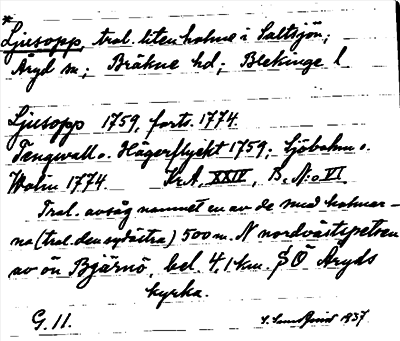 *
Ljusopp, trol. liten holme i Saltsjön;
Åryd sn; Bräkne hd; Blekinge l.
Ljusopp 1759, forts. 1774
Tengwall o. Hägerflycht 1759; Sjöholm o.
Wolin 1774. KrA, XXIV, B. N:o VI
Trol. avsåg namnet en av de små holmar-
na (trol. den sydöstra) 500 m. N nordvästspetsen
av ön Bjärnö, bel. 4,1 km. SÖ Åryds
kyrka.
G. 11. 1937